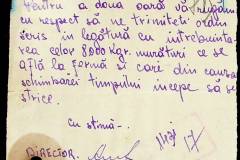 Pentru a doua oară vă rugăm
cu respect să ne trimiteti ordin
scris în legătură cu întrebuința
rea celor 8000 kgr. murături ce se
află la fermă și cari din cauza
schimbărei timpului începe să se
strice.
Cu stimă -.
DIRECTOR